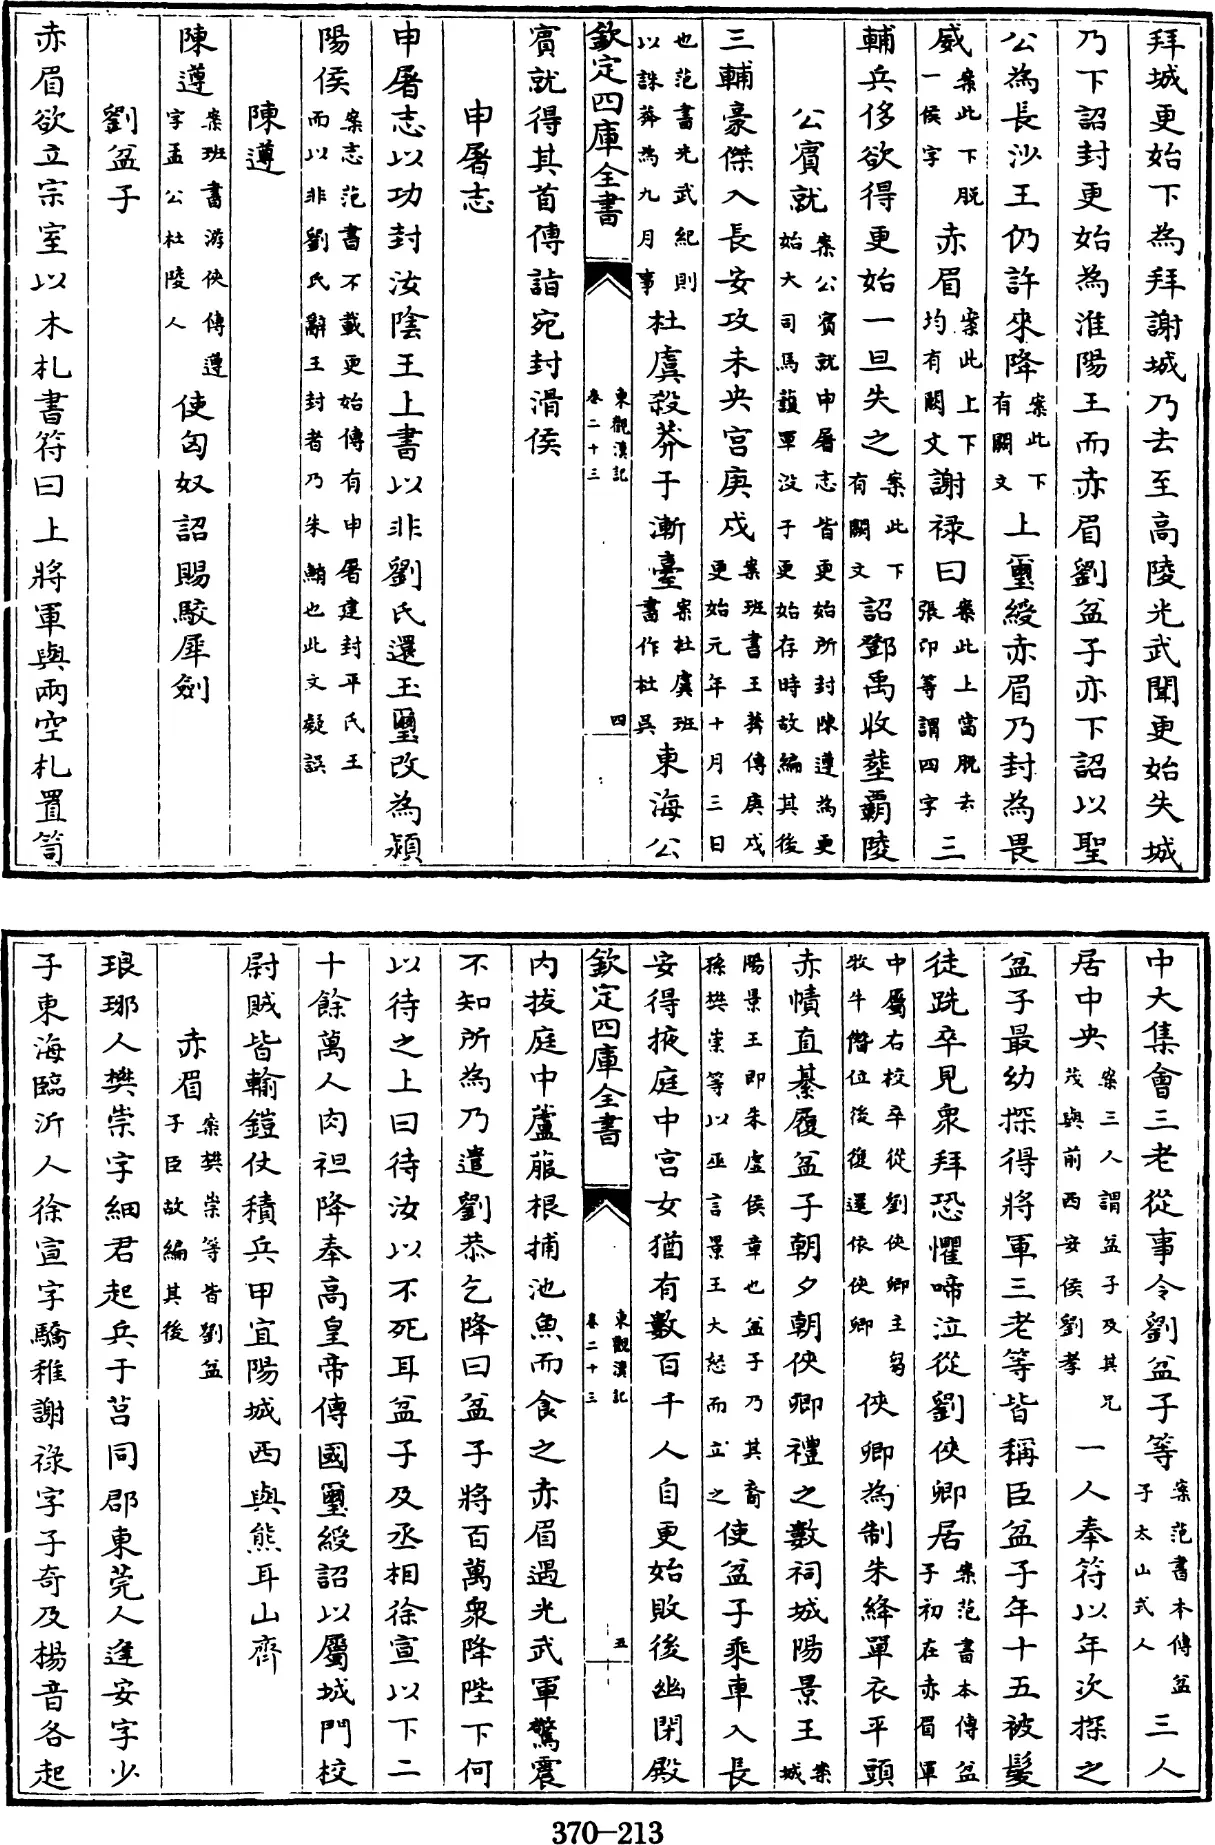 拜城更始下為拜謝城乃去至高陵光武聞更始失城
乃下詔封更始為淮陽王而赤眉劉盆子亦下詔以聖
公為長沙王仍許來降案此下有闕文上璽綬赤眉乃封為畏
威案此下脱一侯字赤眉案此上下均有闕文謝禄曰案此上當脱去張卬等謂四字三
輔兵侈欲得更始一旦失之案此下有闕文詔鄧禹收塟霸陵
公賓就案公賓就申屠志皆更始所封陳遵為更始大司馬護軍没于更始存時故編其後
三輔豪傑入長安攻未央宫庚戍案班書王莽傳庚戍更始元年十月三日
也范書光武紀則以誅莽為九月事杜虞殺莽于漸臺案杜虞班書作杜吳東海公
欽定四庫全書
東觀漢記
卷二十三
四
賓就得其首傳詣宛封滑侯
申屠志
申屠志以功封汝陰王上書以非劉氏還玉璽改為潁
陽侯案志范書不載更始傳有申屠建封平氏王而以非劉氏辭王封者乃朱鮪也此文疑誤
陳遵
陳遵案班書游俠傳遵字孟公杜陵人使匈奴詔賜駮犀劍
劉盆子
赤眉欲立宗室以木札書符曰上將軍與兩空札置笥
中大集會三老從事令劉盆子等案范書本傳盆子太山式人三人
居中央案三人謂盆子及其兄茂與前西安侯劉孝一人奉符以年次探之
盆子最幼探得將軍三老等皆稱臣盆子年十五被髪
徒跣卒見衆拜恐懼啼泣從劉俠卿居案范書本傳盆子初在赤眉軍
中屬右校卒從劉俠卿主芻牧牛僭位後復還依俠卿俠卿為制朱絳單衣平頭
赤幘直綦履盆子朝夕朝俠卿禮之數祠城陽景王案城
陽景王即朱虛侯章也盆子乃其裔孫樊崇等以巫言景王大怒而立之使盆子乘車入長
安得掖庭中宫女猶有數百千人自更始敗後幽閉殿
欽定四庫全書
東觀漢記
卷二十三
五
内拔庭中蘆菔根捕池魚而食之赤眉遇光武軍驚震
不知所為乃遣劉恭乞降曰盆子將百萬衆降陛下何
以待之上曰待汝以不死耳盆子及丞相徐宣以下二
十餘萬人肉袒降奉高皇帝傳國璽綬詔以屬城門校
尉賊皆輸鎧仗積兵甲宜陽城西與熊耳山齊
赤眉案樊崇等皆劉盆子臣故編其後
琅琊人樊崇字細君起兵于莒同郡東莞人逄安字少
子東海臨沂人徐宣字驕稚謝禄字子奇及楊音各起
370-213